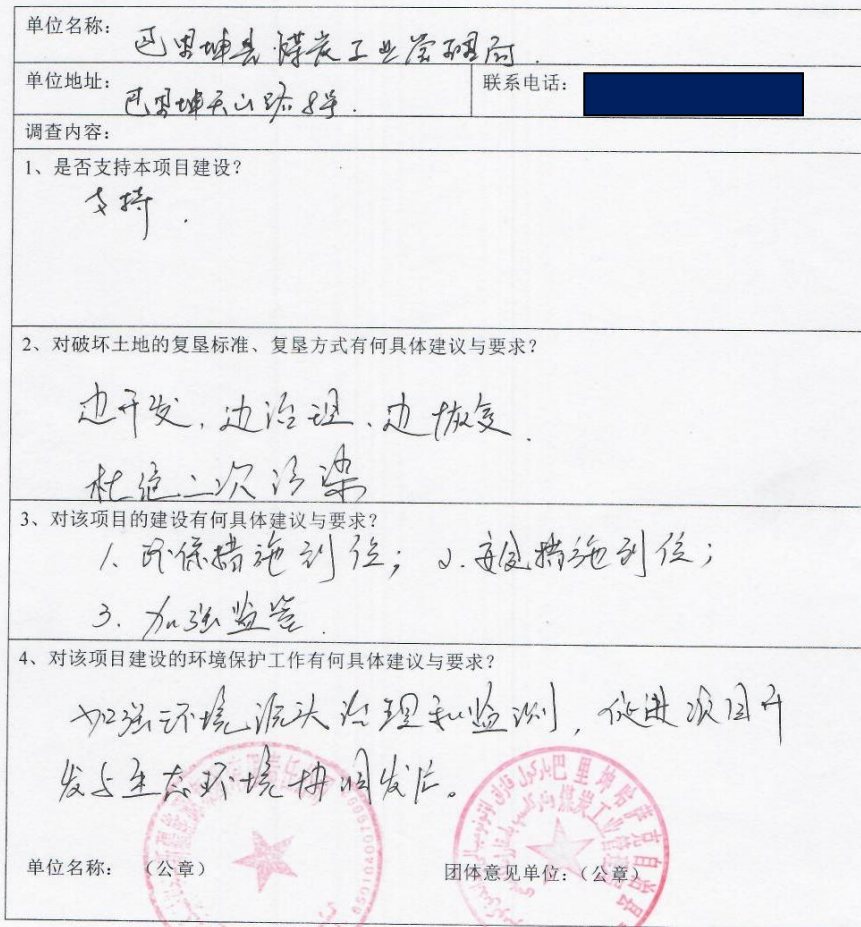 单位名称：巴里坤县煤炭工业管理局.
单位地址：巴里坤天山路8号. 联系电话：
调查内容：
1、是否支持本项目建设？
支持.
2、对破坏土地的复垦标准、复垦方式有何具体建议与要求？
边开发、边治理、边恢复.
杜绝二次污染
3、对该项目的建设有何具体建议与要求？
1. 环保措施到位； 2. 措施到位；
3. 加强监管.
4、对该项目建设的环境保护工作有何具体建议与要求？
加强环境源头治理和监测，促进项目开
发与生态环境协调发展。
单位名称：（公章） 团体意见单位：（公章）
巴里坤哈萨克自治县煤炭工业管理局